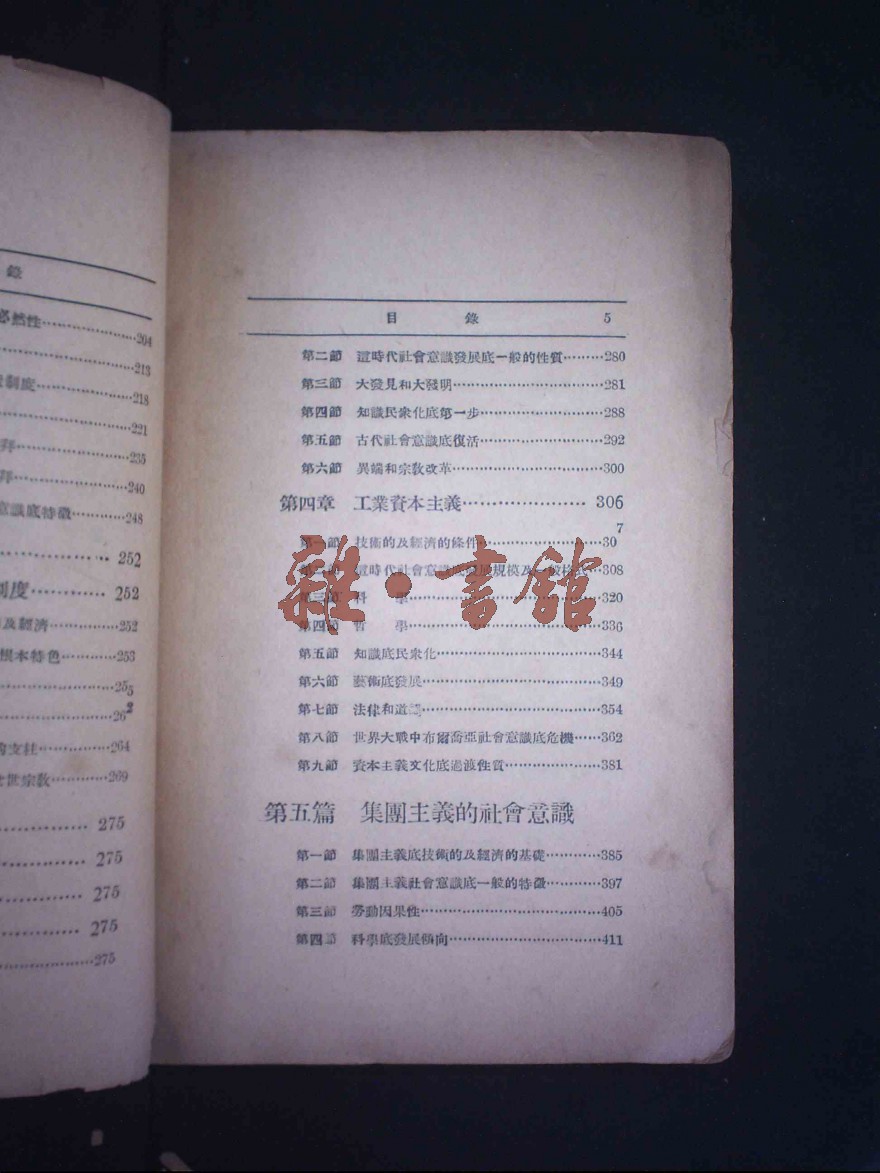 錄
必然性………………204
………………213
制度………………218
………………221
拜………………235
拜………………240
意識底特徵…………248
………………252
制度…………252
及經濟………………252
根本特色…………253
………………255
………………262
的支柱………………264
世宗教…………269
………………275
………………275
………………275
………………275
………………275
目 錄 5
第二節 這時代社會意識發展底一般的性質………280
第三節 大發見和大發明………………281
第四節 知識民衆化底第一步………………288
第五節 古代社會意識底復活………………292
第六節 異端和宗教改革………………300
第四章 工業資本主義………………306
7
第一節 技術的及經濟的條件………………30
第二節 這時代社會意識底發展規模及一般格式…308
第三節 科 學………………320
第四節 哲 學………………336
第五節 知識底民衆化………………344
第六節 藝術底發展………………349
第七節 法律和道………………354
第八節 世界大戰中布爾喬亞社會意識底危機……362
第九節 資本主義文化底過渡性質………………381
第五篇 集團主義的社會意識
第一節 集團主義底技術的及經濟的基礎…………385
第二節 集團主義社會意識底一般的特徵…………397
第三節 勞動因果性………………405
第四節 科學底發展傾向………………411
雜·書館